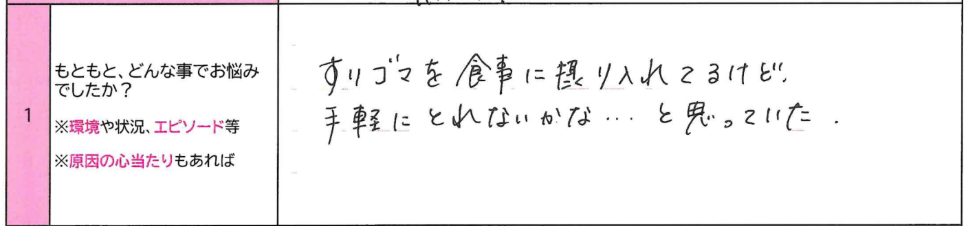 1
もともと、どんな事でお悩み
でしたか？
※環境や状況、エピソード等
※原因の心当たりもあれば
すりゴマを食事に摂り入れてるけど、
手軽にとれないかな…と思っていた.